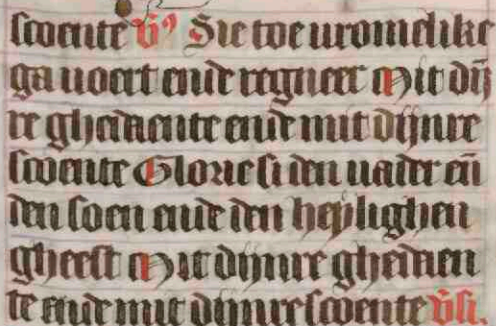 scoente v͛ꝰ Sie toe uromelike
ga uoert ende regneer Mit dij
re ghedaente ende mit dijnre
scoente Glorie si den uader en̄
den soen ende den heylighen
gheest Mit dijnre ghedaen
te ende mit dijnre scoente v͛si.